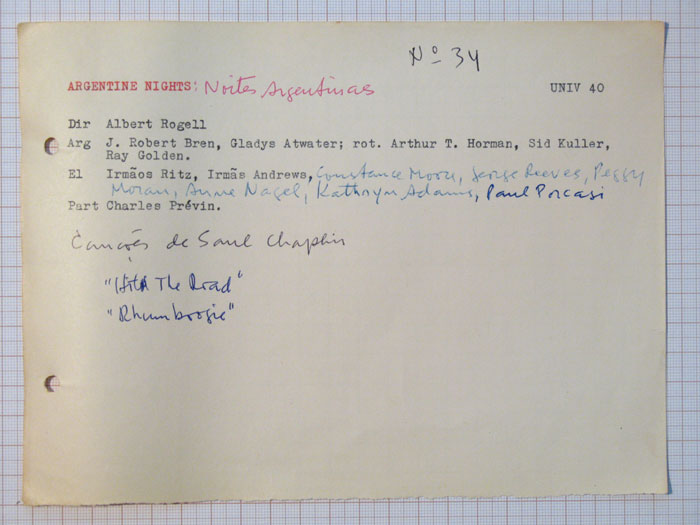 Nº 34
ARGENTINE NIGHTS: Noites Argentinas UNIV 40
Dir Albert Rogell
Arg J. Robert Bren, Gladys Atwater; rot. Arthur T. Horman, Sid Kuller,
Ray Golden.
El Irmãos Ritz, Irmãs Andrews, Constance Moore, George Reeves, Peggy
Moran, Anne Nagel, Kathryn Adams, Paul Porcasi
Part Charles Prévin.
Canções de Saul Chaplin
"Hit The Road"
"Rhumboogie"